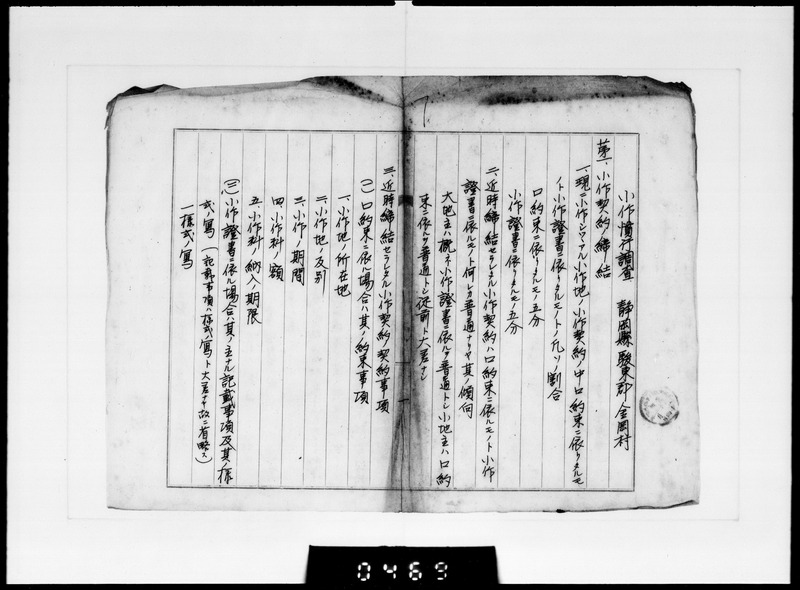 小作慣行調査 静岡縣駿東郡金岡村
第一、小作契約締結
一、現ニ小作シツヽアル小作地ノ小作契約中口約束ニ依リタルモ
ノト小作證書ニ依リタルモノトノ凡ソノ割合
口約束ニ依リタルモノ五分
小作證書ニ依リタルモノ五分
二、近時締結セラレタル小作契約ハ口約束ニ依ルモノト小作
證書ニ依ルモノト何レカ普通ナリヤ其ノ傾向
大地主ハ概ネ小作證書ニ依ルヲ普通トシ小地主ハ口約
束ニ依ルヲ普通トシ從前ト大差ナシ
三、近時締結セラレタル小作契約ノ契約事項
(一)口約束ニ依ル場合ハ其ノ約束事項
一、小作地ノ所在地
二、小作地ノ反別
三、小作ノ期間
四、小作料ノ額
五、小作料ノ納入ノ期限
(二)小作證書ニ依ル場合ハ其ノ主ナル記載事項及其ノ様
式ノ寫 (記載事項ハ様式寫ト大差ナキ故ニ省略ス)
一様式ノ寫
0469